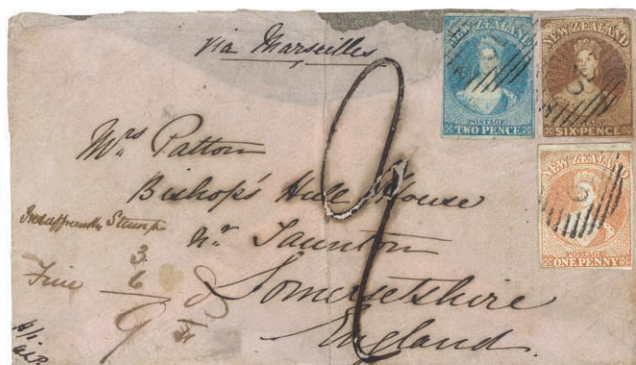 via Marseilles
NEW ZEALAND
POSTAGE
TWO PENCE
NEW ZEALAND
POSTAGE
SIX PENCE
NEW ZEALAND
POSTAGE
ONE PENNY
Mrs Patton
Bishop's Hull House
nr Taunton
Somersetshire
England.
Insufficiently Stamp
3
Fine 6
9 d
9